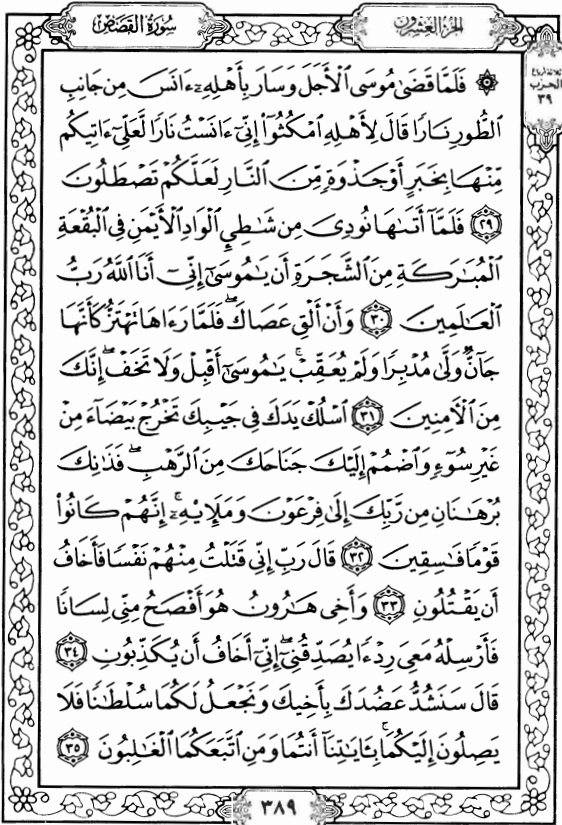 سُورَةُ القَصَصِ
الجُزْءُ العِشْرُونَ
ثلاثة أرباع
الحزب
٣٩
۞ فَلَمَّا قَضَىٰ مُوسَى ٱلْأَجَلَ وَسَارَ بِأَهْلِهِۦٓ ءَانَسَ مِن جَانِبِ
ٱلطُّورِ نَارًا قَالَ لِأَهْلِهِ ٱمْكُثُوٓا۟ إِنِّىٓ ءَانَسْتُ نَارًا لَّعَلِّىٓ ءَاتِيكُم
مِّنْهَا بِخَبَرٍ أَوْ جَذْوَةٍ مِّنَ ٱلنَّارِ لَعَلَّكُمْ تَصْطَلُونَ
٢٩ فَلَمَّآ أَتَىٰهَا نُودِىَ مِن شَٰطِئِ ٱلْوَادِ ٱلْأَيْمَنِ فِى ٱلْبُقْعَةِ
ٱلْمُبَٰرَكَةِ مِنَ ٱلشَّجَرَةِ أَن يَٰمُوسَىٰٓ إِنِّىٓ أَنَا ٱللَّهُ رَبُّ
ٱلْعَٰلَمِينَ ٣٠ وَأَنْ أَلْقِ عَصَاكَ ۖ فَلَمَّا رَءَاهَا تَهْتَزُّ كَأَنَّهَا
جَآنٌّ وَلَّىٰ مُدْبِرًا وَلَمْ يُعَقِّبْ ۚ يَٰمُوسَىٰٓ أَقْبِلْ وَلَا تَخَفْ ۖ إِنَّكَ
مِنَ ٱلْءَامِنِينَ ٣١ ٱسْلُكْ يَدَكَ فِى جَيْبِكَ تَخْرُجْ بَيْضَآءَ مِنْ
غَيْرِ سُوٓءٍ وَٱضْمُمْ إِلَيْكَ جَنَاحَكَ مِنَ ٱلرَّهْبِ ۖ فَذَٰنِكَ
بُرْهَٰنَانِ مِن رَّبِّكَ إِلَىٰ فِرْعَوْنَ وَمَلَإِي۟هِۦٓ ۚ إِنَّهُمْ كَانُوا۟
قَوْمًا فَٰسِقِينَ ٣٢ قَالَ رَبِّ إِنِّى قَتَلْتُ مِنْهُمْ نَفْسًا فَأَخَافُ
أَن يَقْتُلُونِ ٣٣ وَأَخِى هَٰرُونُ هُوَ أَفْصَحُ مِنِّى لِسَانًا
فَأَرْسِلْهُ مَعِىَ رِدْءًا يُصَدِّقُنِىٓ ۖ إِنِّىٓ أَخَافُ أَن يُكَذِّبُونِ ٣٤
قَالَ سَنَشُدُّ عَضُدَكَ بِأَخِيكَ وَنَجْعَلُ لَكُمَا سُلْطَٰنًا فَلَا
يَصِلُونَ إِلَيْكُمَا ۚ بِـَٔايَٰتِنَآ أَنتُمَا وَمَنِ ٱتَّبَعَكُمَا ٱلْغَٰلِبُونَ ٣٥
٣٨٩